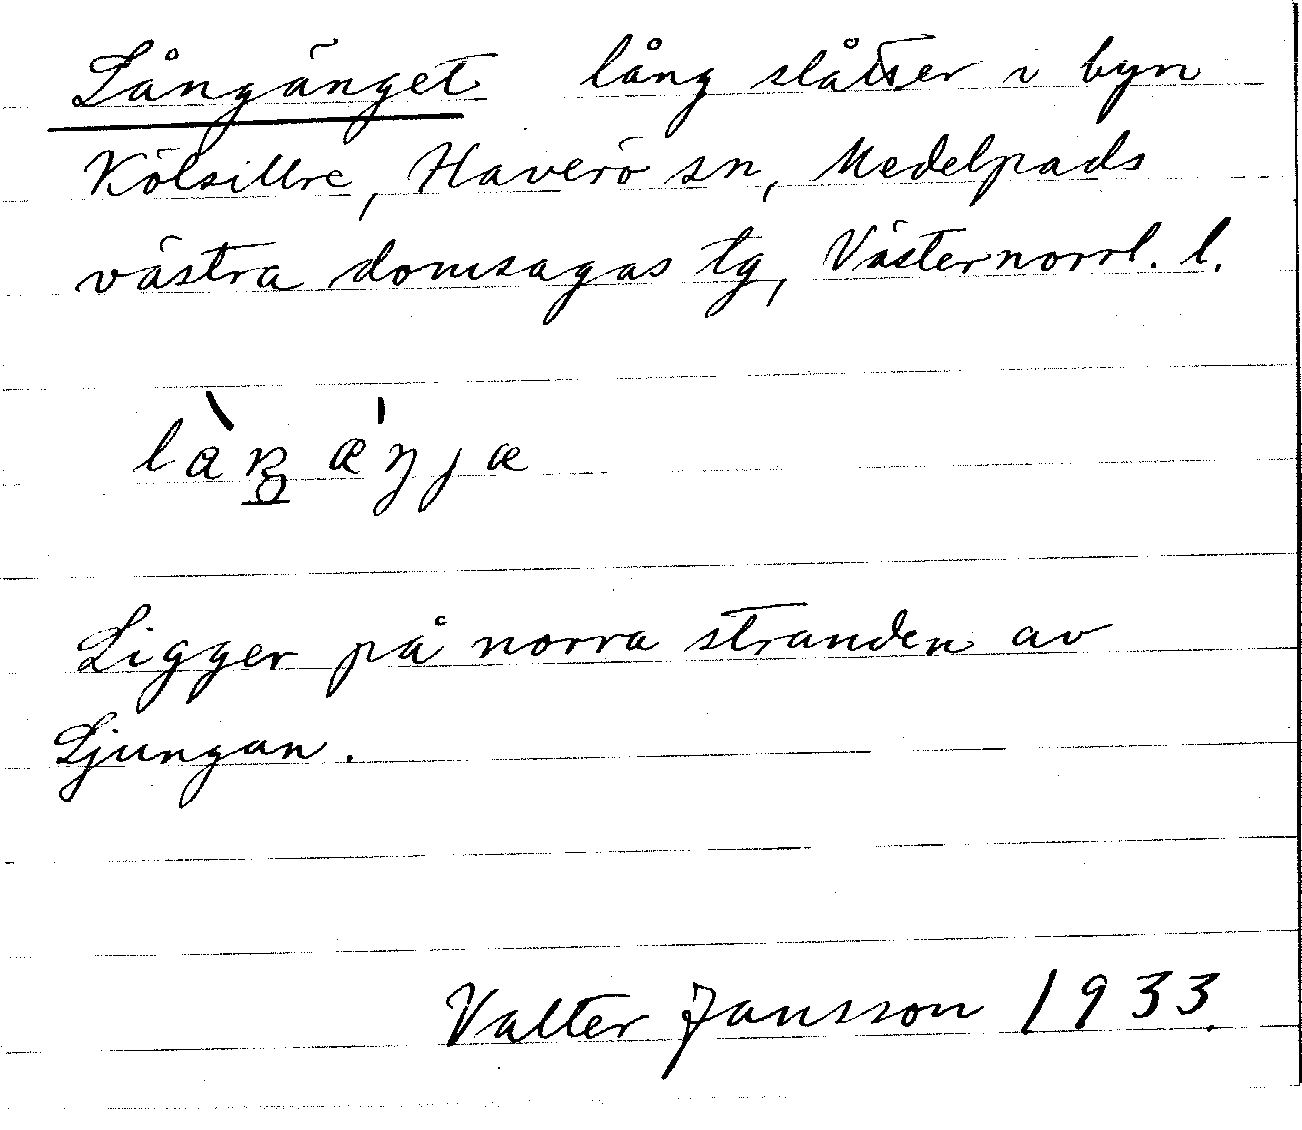 Långänget lång slåtter i byn
Kölsillre, Haverö sn, Medelpads
västra domsagas tg, Västernorrl. l.
Ligger på norra stranden av
Ljungan.
Valter Jansson 1933.